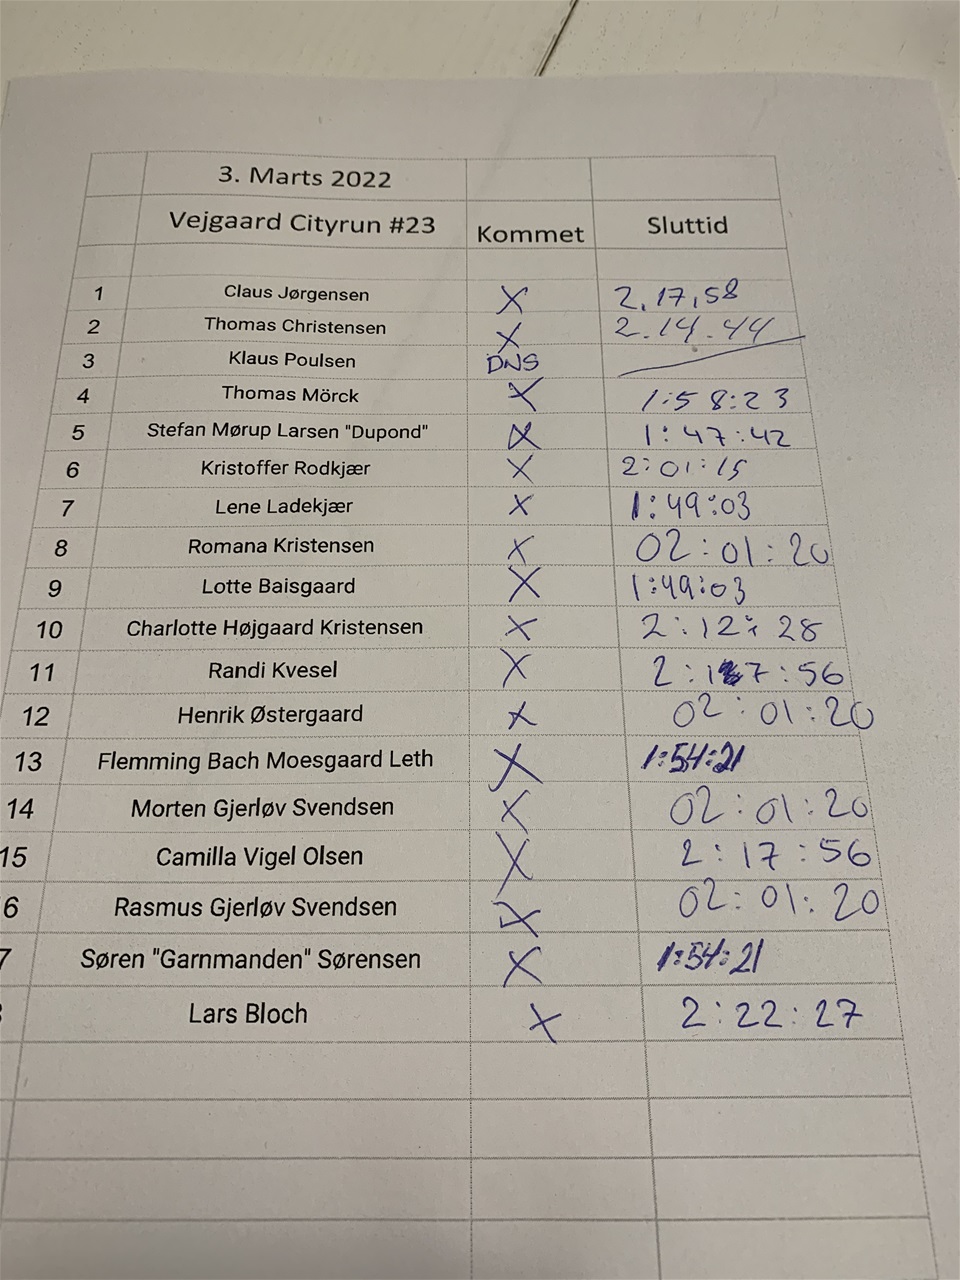 3. Marts 2022
Vejgaard Cityrun #23 Kommet Sluttid
1 Claus Jørgensen X 2,17,58
2 Thomas Christensen X 2.14.44
3 Klaus Poulsen DNS
4 Thomas Mörck X 1:58:23
5 Stefan Mørup Larsen "Dupond" X 1:47:42
6 Kristoffer Rodkjær X 2:01:15
7 Lene Ladekjær X 1:49:03
8 Romana Kristensen X 02:01:20
9 Lotte Baisgaard X 1:49:03
10 Charlotte Højgaard Kristensen X 2:12:28
11 Randi Kvesel X 2:17:56
12 Henrik Østergaard X 02:01:20
13 Flemming Bach Moesgaard Leth X 1:54:21
14 Morten Gjerløv Svendsen X 02:01:20
15 Camilla Vigel Olsen X 2:17:56
6 Rasmus Gjerløv Svendsen X 02:01:20
7 Søren "Garnmanden" Sørensen X 1:54:21
Lars Bloch X 2:22:27